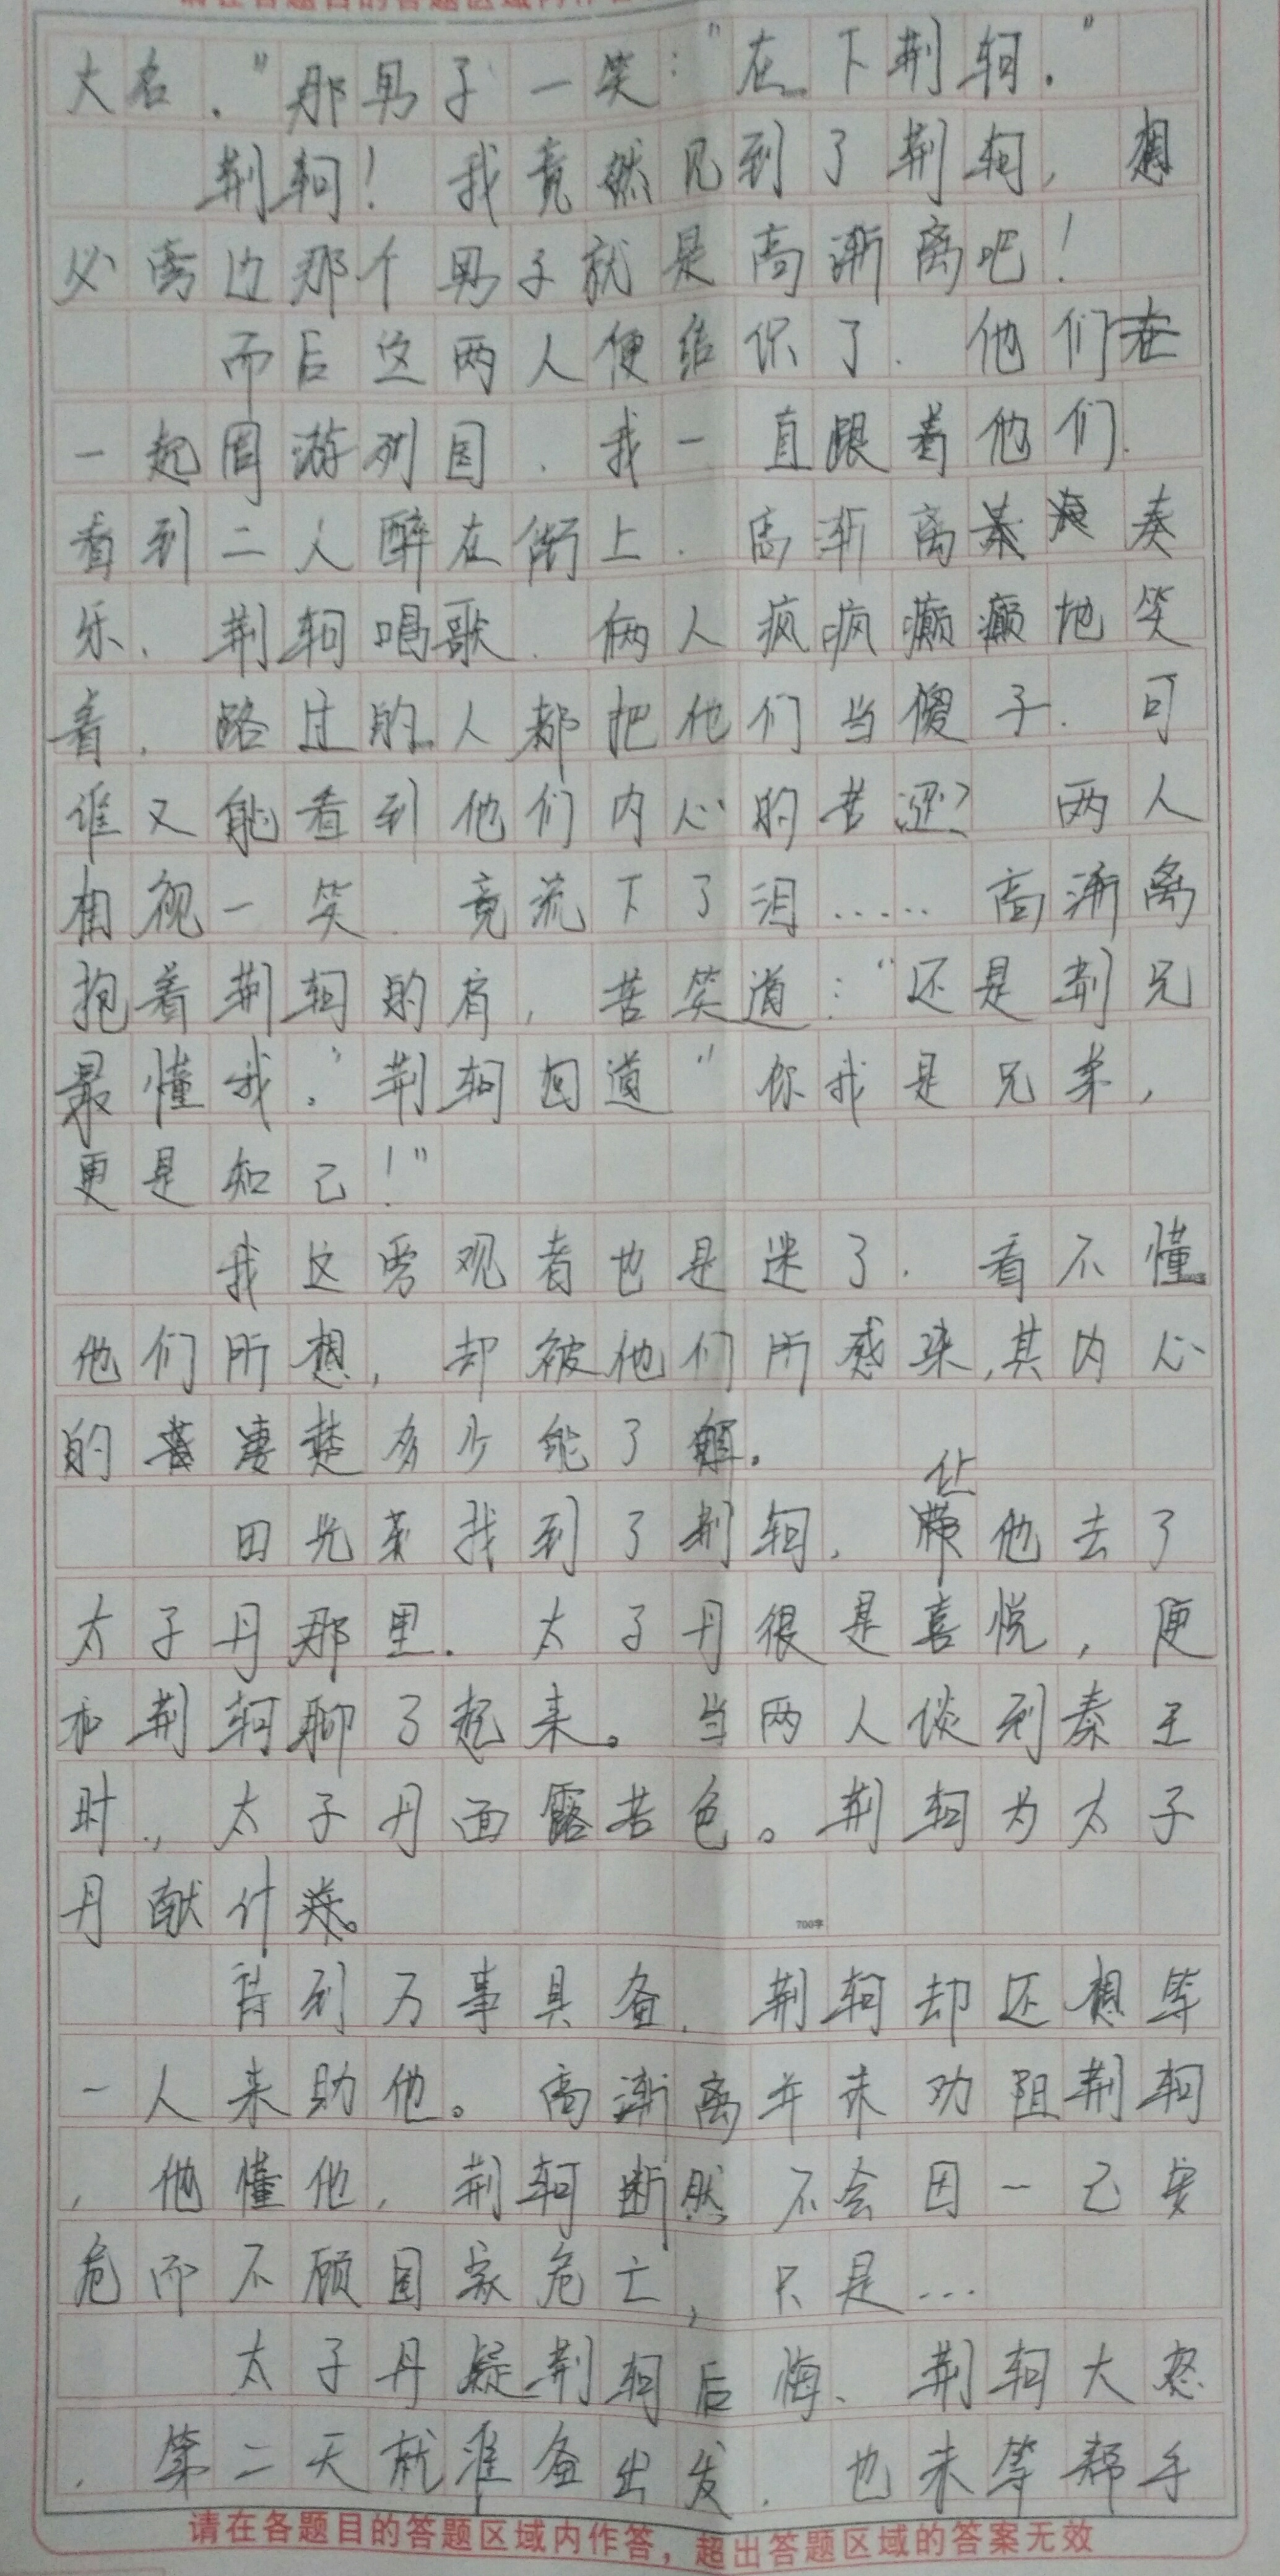 大名."那男子一笑:"在下荆轲."
荆轲!我竟然见到了荆轲,想
必旁边那个男子就是高渐离吧!
而后这两人便结识了.他们在
一起周游列国.我一直跟着他们.
看到二人醉在街上.高渐离奏
乐、荆轲唱歌.俩人疯疯癫癫地笑
着.路过的人都把他们当傻子.可
谁又能看到他们内心的苦涩?两人
相视一笑.竟流下了泪……高渐离
抱着荆轲的肩,苦笑道:"还是荆兄
最懂我."荆轲回道"你我是兄弟,
更是知己!"
我这旁观者也是迷了.看不懂
他们所想,却被他们所感染,其内心
的凄楚多少能了解。
田光来找到了荆轲,让他去了
太子丹那里.太子丹很是喜悦,便
和荆轲聊了起来。当两人谈到秦王
时.,太子丹面露苦色。荆轲为太子
丹献计策。
700字
待到万事具备.荆轲却还想等
一人来助他。高渐离并未劝阻荆轲
,他懂他,荆轲断然不会因一己安
危而不顾国家危亡,只是...
太子丹疑荆轲后悔、荆轲大怒
.第二天就准备出发.也未等帮手
请在各题目的答题区域内作答，超出答题区域的答案无效